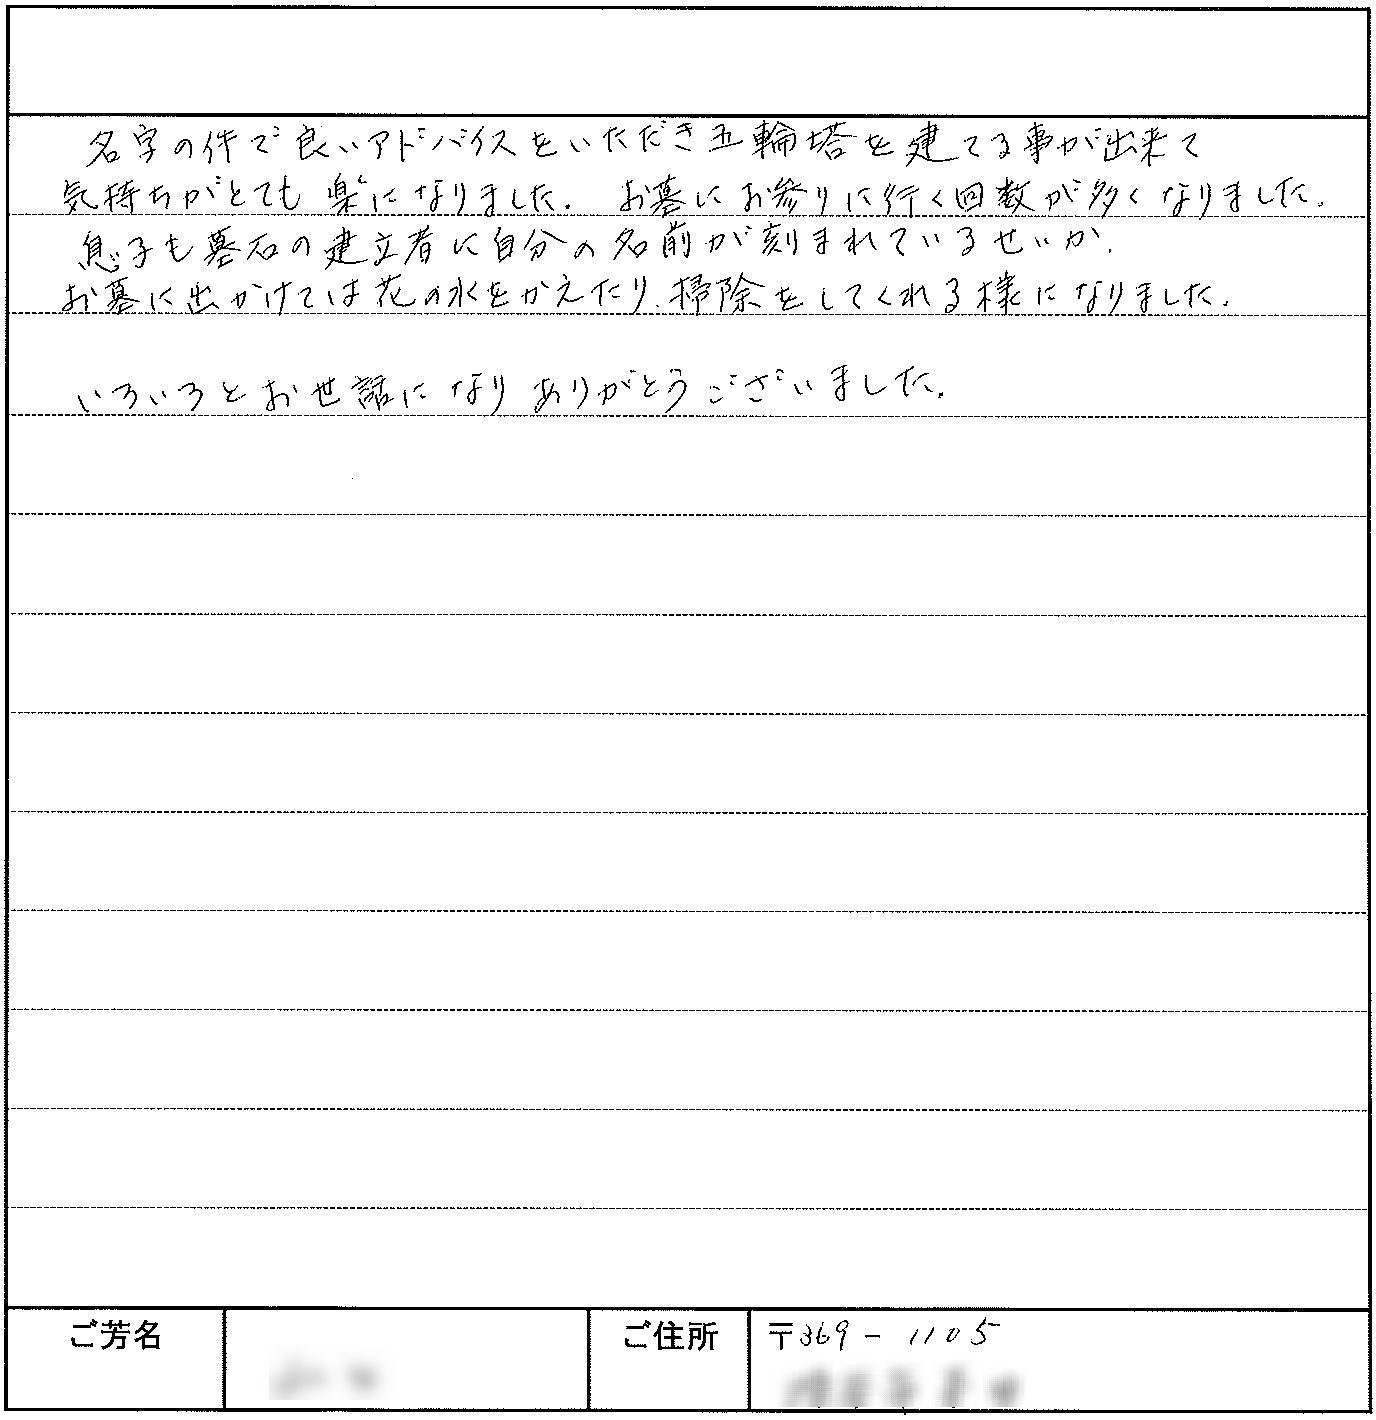 名字の件で良いアドバイスをいただき五輪塔を建てる事が出来て
気持ちがとても楽になりました. お墓にお参りに行く回数が多くなりました.
息子も墓石の建立者に自分の名前が刻まれているせいか.
お墓に出かけては花の水をかえたり、掃除をしてくれる様になりました.
いろいろとお世話になりありがとうございました.
ご芳名 ご住所 〒369-1105